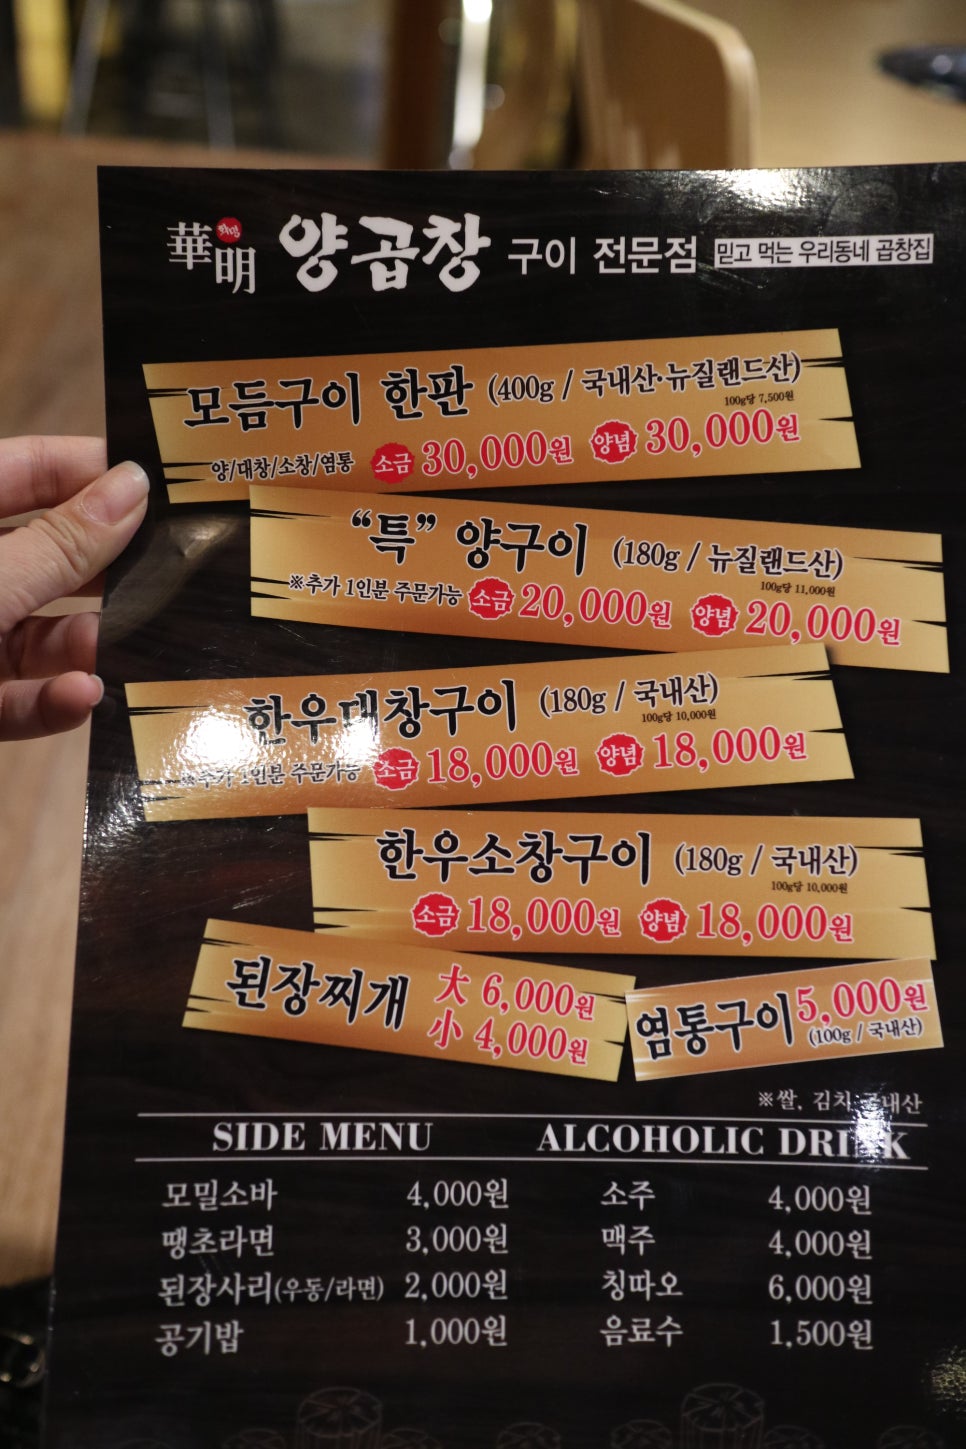 華明 화명 양곱창 구이 전문점 믿고 먹는 우리동네 곱창집
모듬구이 한판 (400g / 국내산·뉴질랜드산)
100g당 7,500원
양/대창/소창/염통 소금 30,000원 양념 30,000원
“특” 양구이 (180g / 뉴질랜드산)
100g당 11,000원
※추가 1인분 주문가능 소금 20,000원 양념 20,000원
한우대창구이 (180g / 국내산)
100g당 10,000원
※추가 1인분 주문가능 소금 18,000원 양념 18,000원
한우소창구이 (180g / 국내산)
100g당 10,000원
소금 18,000원 양념 18,000원
된장찌개 大 6,000원
小 4,000원
염통구이 5,000원
(100g / 국내산)
※쌀, 김치 국내산
SIDE MENU ALCOHOLIC DRINK
모밀소바 4,000원 소주 4,000원
땡초라면 3,000원 맥주 4,000원
된장사리(우동/라면) 2,000원 칭따오 6,000원
공기밥 1,000원 음료수 1,500원